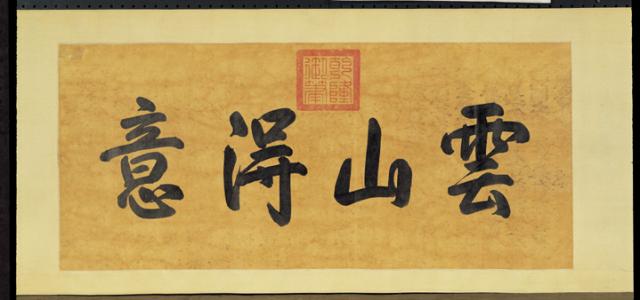 乾隆御筆
雲山得意